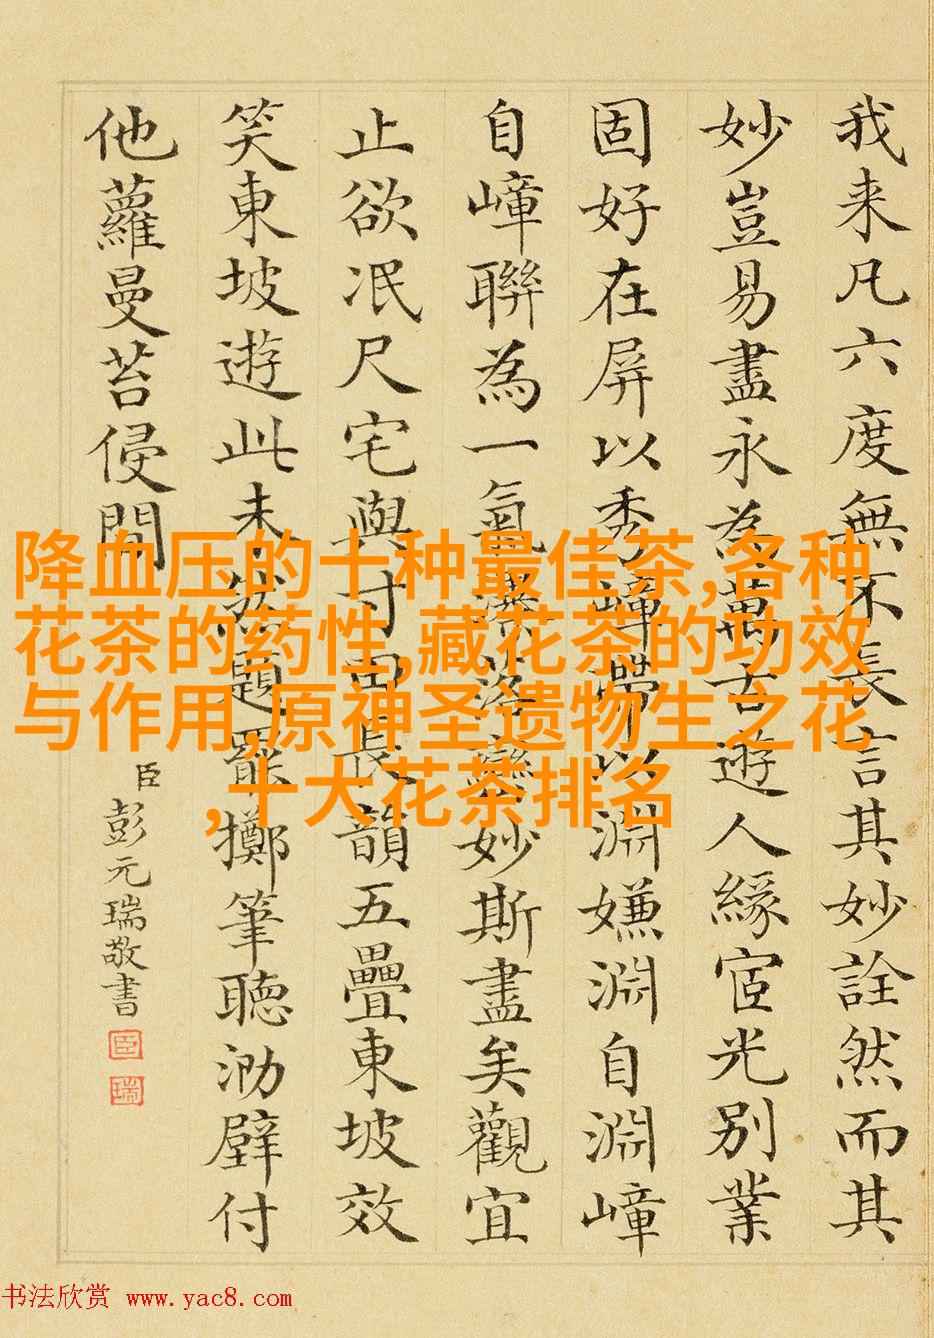 我来凡六度無不長言其妙詮然而其
妙豈易盡永為萬古遊人緣宦光別業
固好在屏以秀嶂帶以淵嫌淵自淵嶂
自嶂聯為一氣妙斯盡矣觀宜
止欲泯尺宅與寸田長韻五疊東坡效
笑東坡遊此未然題罷擲筆聽泐壁付
他蘿曼苔侵間
臣彭元瑞敬書
臣
瑞
降血压的十种最佳茶,各种
花茶的药性,藏花茶的功效
与作用,原神圣遗物生之花
,十大花茶排名
书法欣赏 www.yac8.com